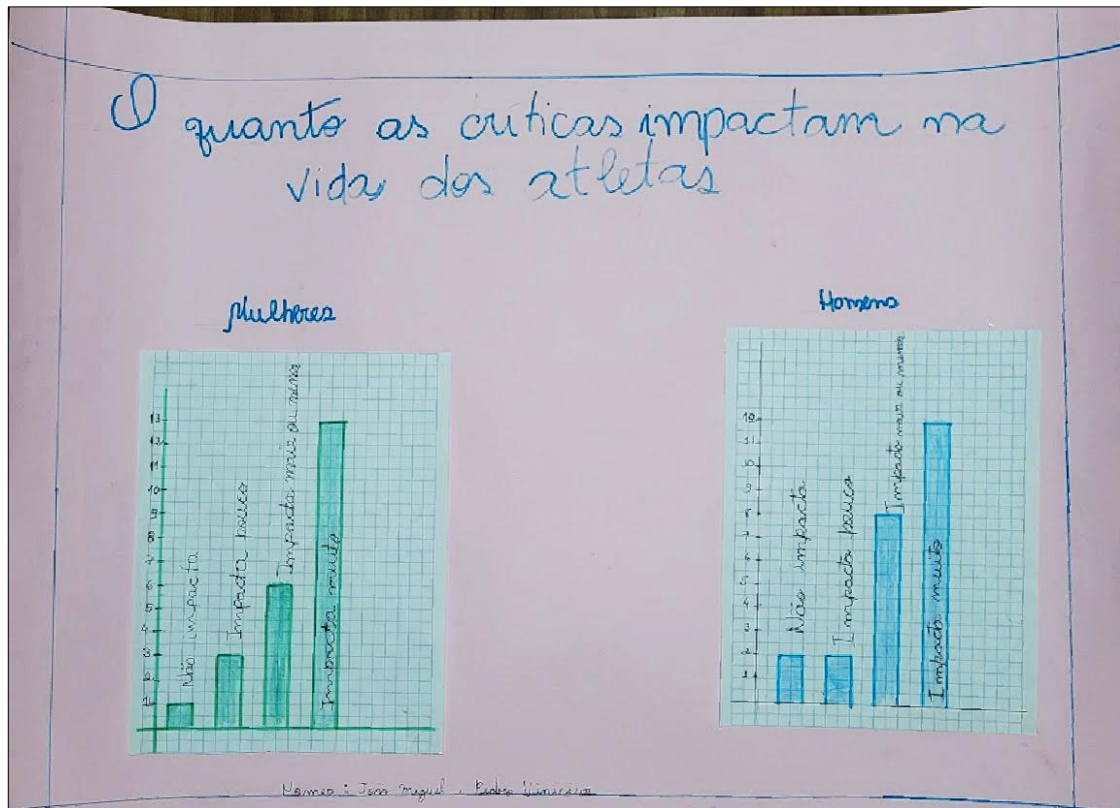 O quanto as críticas impactam na
vida dos atletas
Mulheres
13
12
11
10
9
8
7
6
5
4
3
2
1
Não impacta
Impacta pouco
Impacta mais ou menos
Impacta muito
Homens
10
11
Não impacta
Impacta pouco
Impacta mais ou menos
Impacta muito
Nomes: João Miguel, Pedro Vinicius